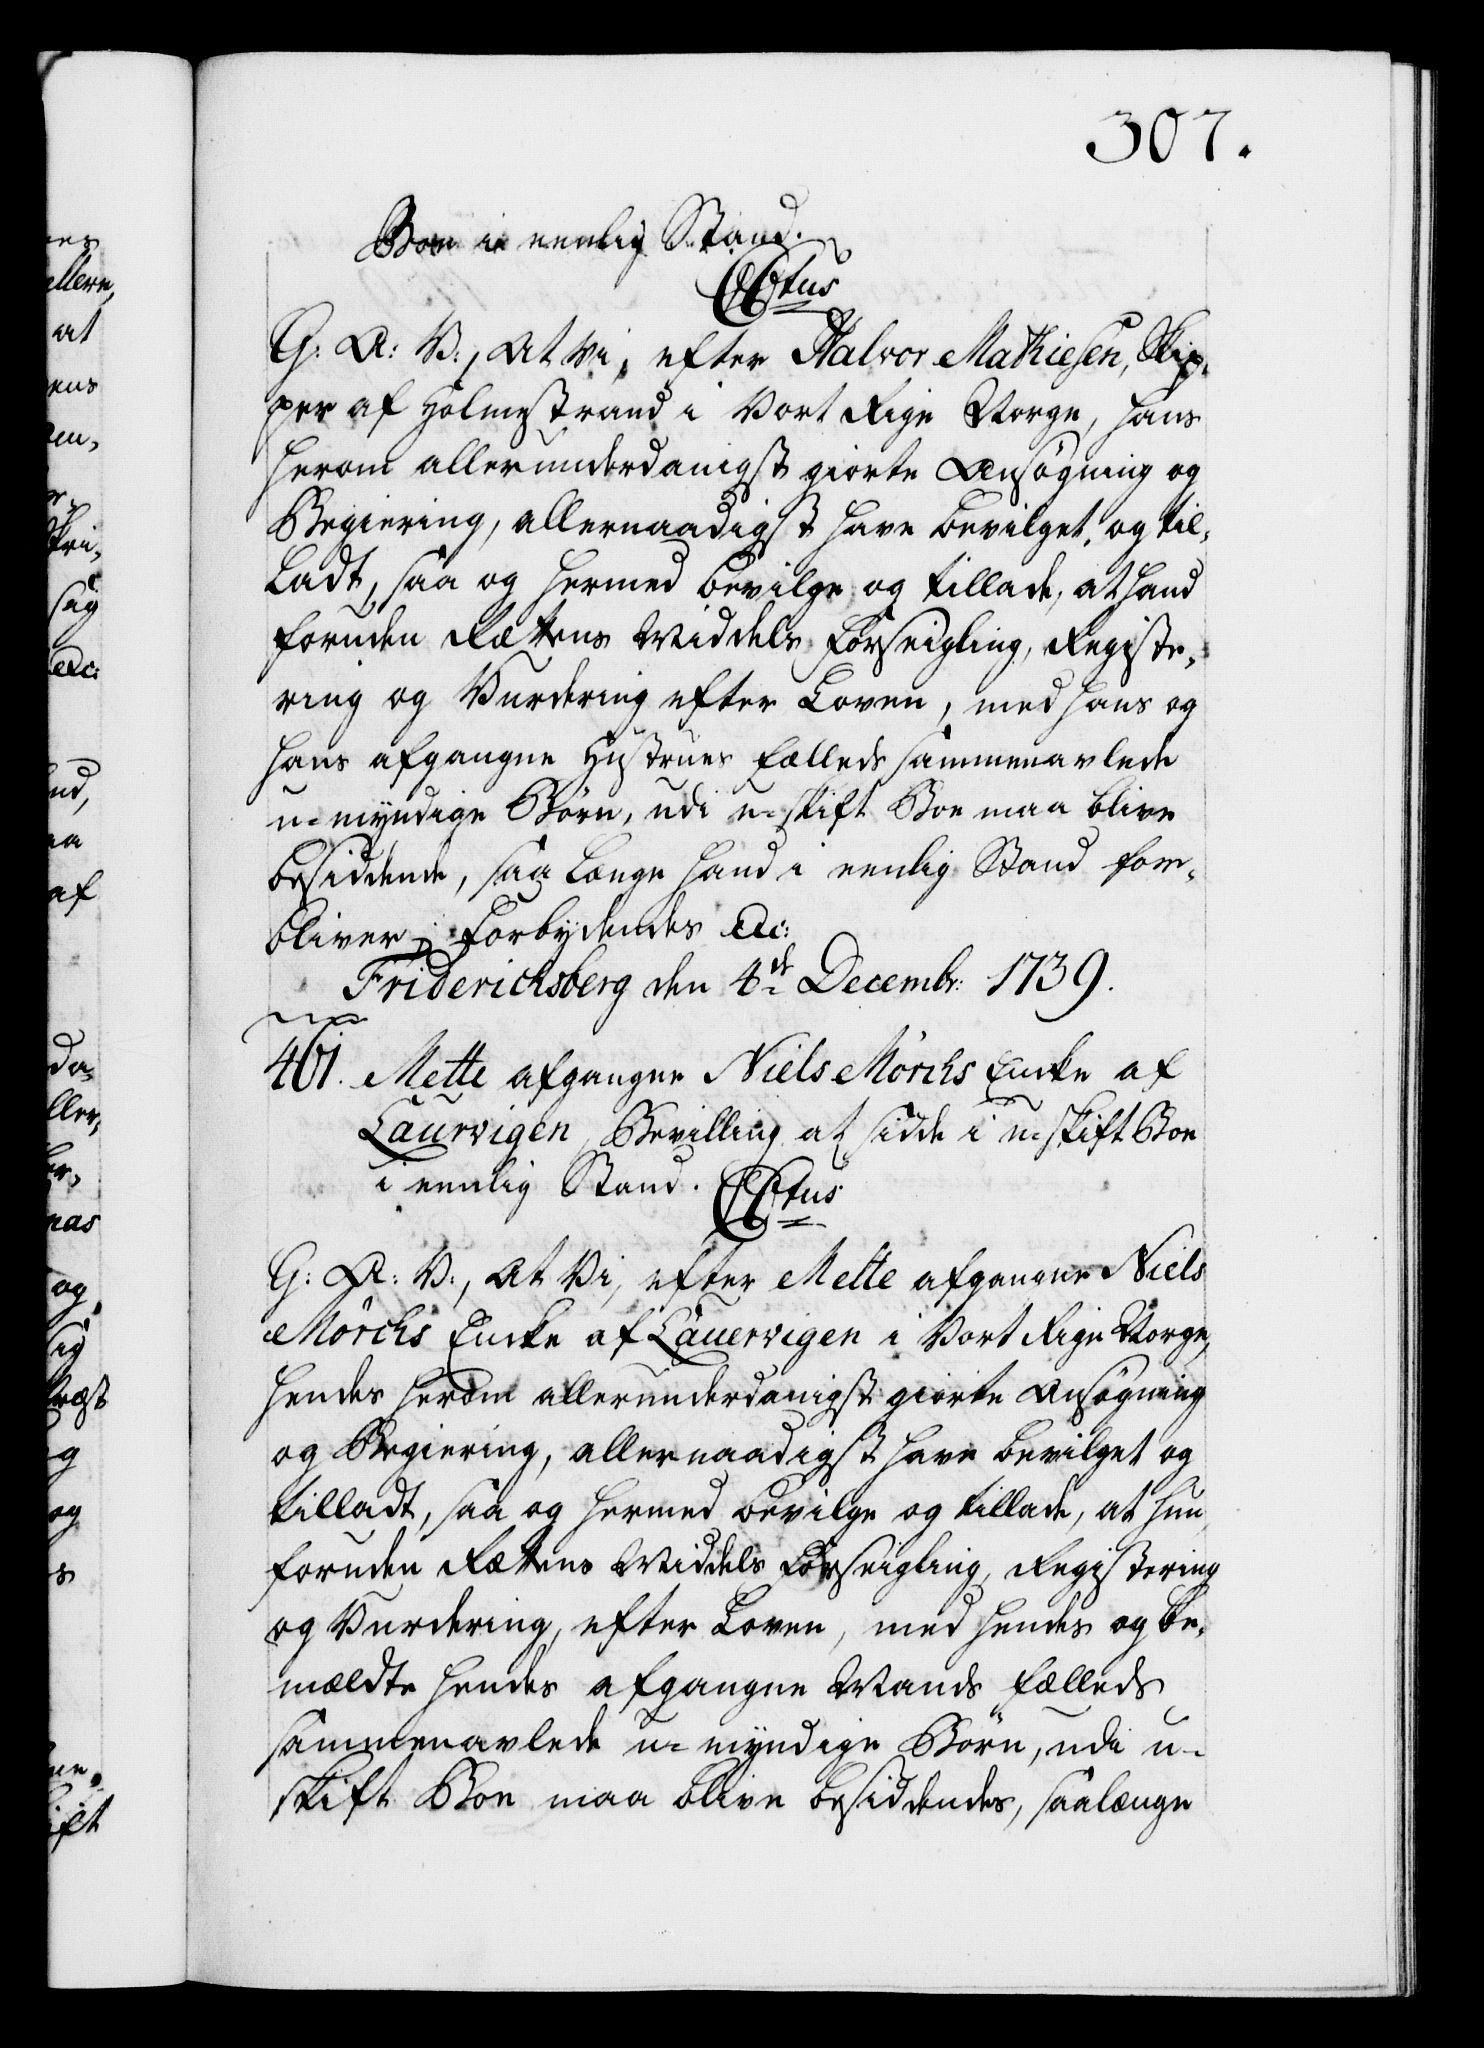 307.
Boe i eenlig Stand.
CCtus
G: A: V:, At Vi, efter Halvor Mathiesen, Skip-
per af Holmestrand i Vort Rige Norge, hans
herom allerunderdanigst giorte Ansøgning og
Begiering, allernaadigst have bevilget, og til-
ladt, saa og hermed bevilge og tillade, at hand
foruden Rættens Middels Forseigling, Registe-
ring og Vurdering efter Loven, med hans og
hans afgangne Hustrues fælleds sammenavlede
u-myndige Børn, udi u-skift Boe maa blive
besiddende, saa længe hand i eenlig Stand for-
bliver; Forbydendes &c:
Friderichsberg den 4de Decembr: 1739.
461. Mette afgangne Niels Mörchs Encke af
Laurvigen, Bevilling at sidde i u-skift Boe
i eenlig Stand. CCtus
G: A: V:, At Vi, efter Mette afgangne Niels
Mörchs Encke af Lauervigen i Vort Rige Norge,
hendes herom allerunderdanigst giorte Ansøgning
og Begiering, allernaadigst have bevilget og
tilladt, saa og hermed bevilge og tillade, at hun,
foruden Rættens Middels Forseigling, Registering
og Vurdering, efter Loven, med hendes og be-
mældte hendes afgangne Mands fælleds
sammenavlede u-myndige Börn, udi u-
skift Boe maa blive besiddendes, saalænge